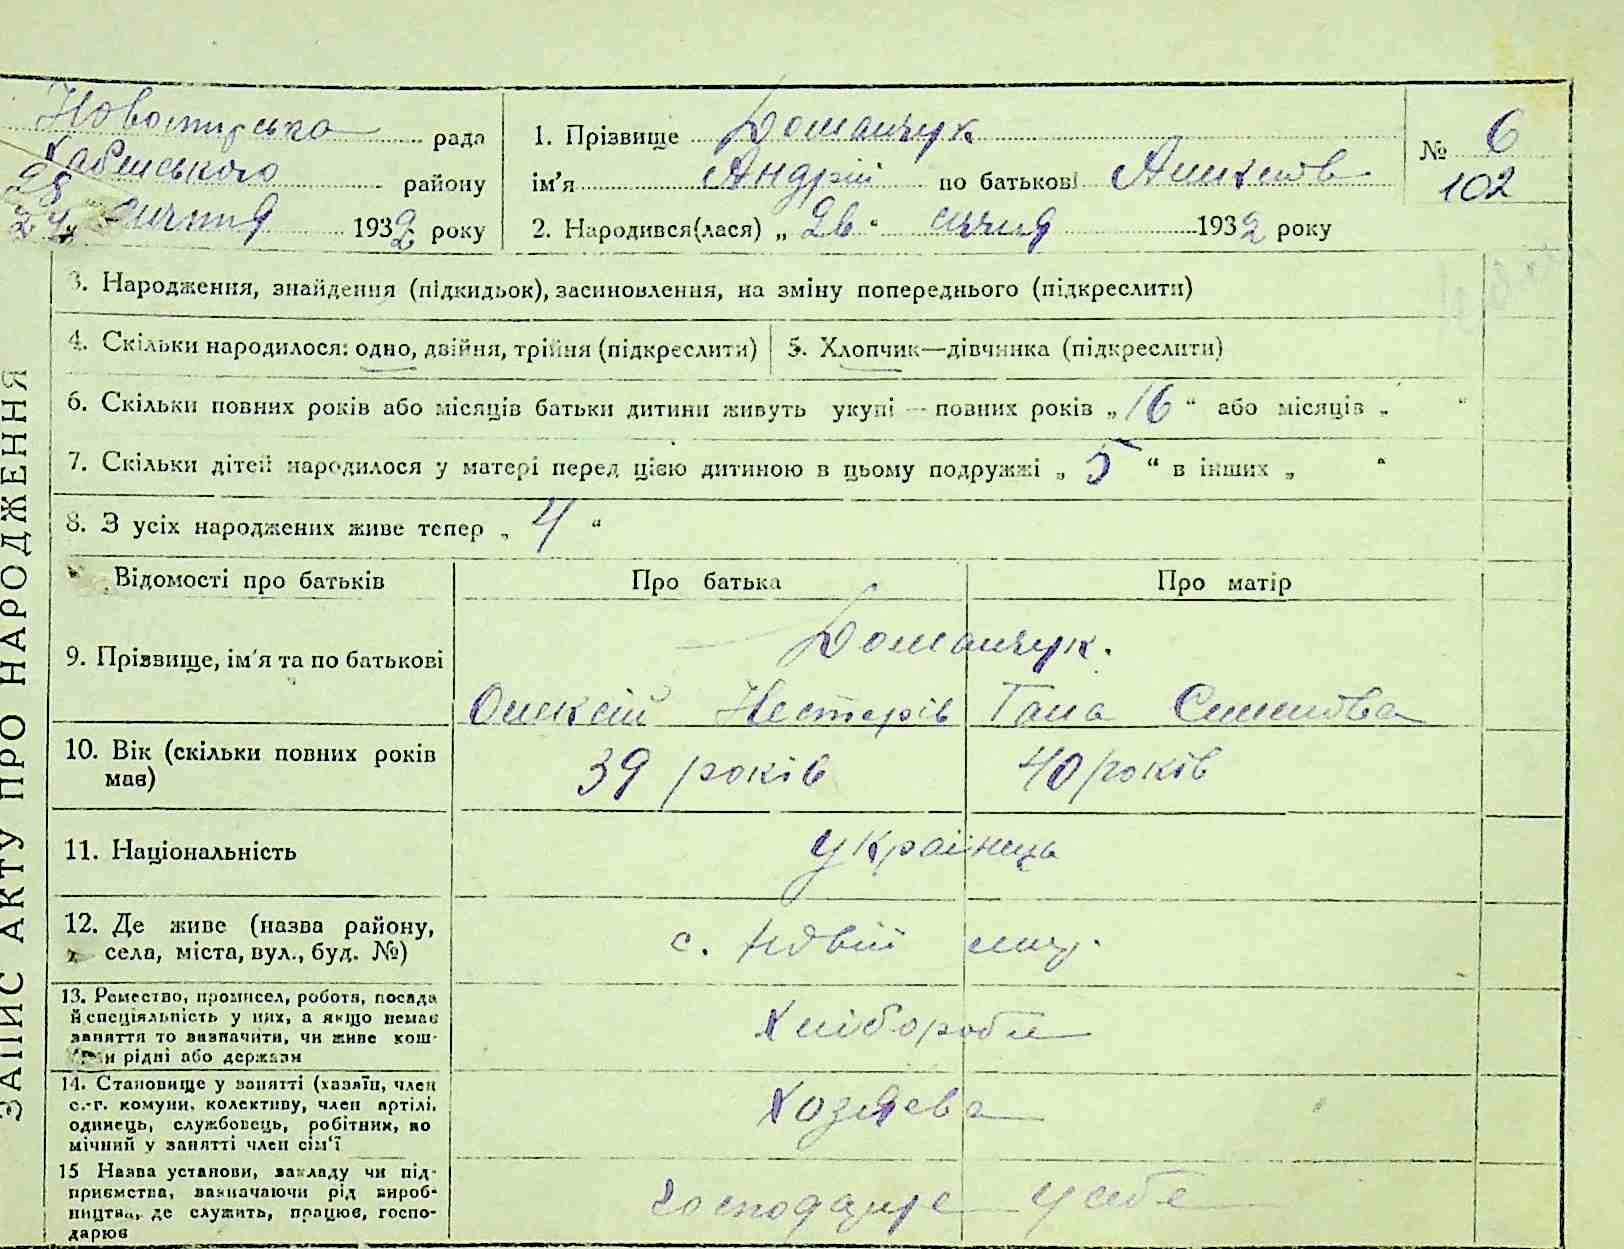 Новомирська рада
Хабенського району
28 січня 1932 року
1. Прізвище Доманчук
ім'я Андрій по батькові Олексіїв
2. Народився(лася) „ 26 “ січня 1932 року
№ 6
102
3. Народження, знайдення (підкидьок), засиновлення, на зміну попереднього (підкреслити)
4. Скільки народилося: одно, двійня, трійня (підкреслити)
5. Хлопчик—дівчинка (підкреслити)
6. Скільки повних років або місяців батьки дитини живуть укупі — повних років „ 16 “ або місяців „ “
7. Скільки дітей народилося у матері перед цією дитиною в цьому подружжі „ 5 “ в інших „ “
8. З усіх народжених живе тепер „ 4 “
Відомості про батьків Про батька Про матір
9. Прізвище, ім'я та по батькові
Доманчук.
Олексій Нестерів Гана Семенова
10. Вік (скільки повних років
має)
39 років 40 років
11. Національність
українець
12. Де живе (назва району,
села, міста, вул., буд. №)
с. Новий мир.
13. Ремество, промисел, робота, посада
й спеціяльність у них, а якщо немає
заняття то визначити, чи живе кош-
и рідні або держави
Хлібороби
14. Становище у занятті (хазяїн, член
с.-г. комуни, колективу, член артілі,
одинець, службовець, робітник, по
мічний у занятті член сім'ї
Хозяева
15 Назва установи, закладу чи під-
приємства, зазначаючи рід вироб-
ництва, де служить, працює, госпо-
дарює
господарує у себе
ЗАПИС АКТУ ПРО НАРОДЖЕННЯ